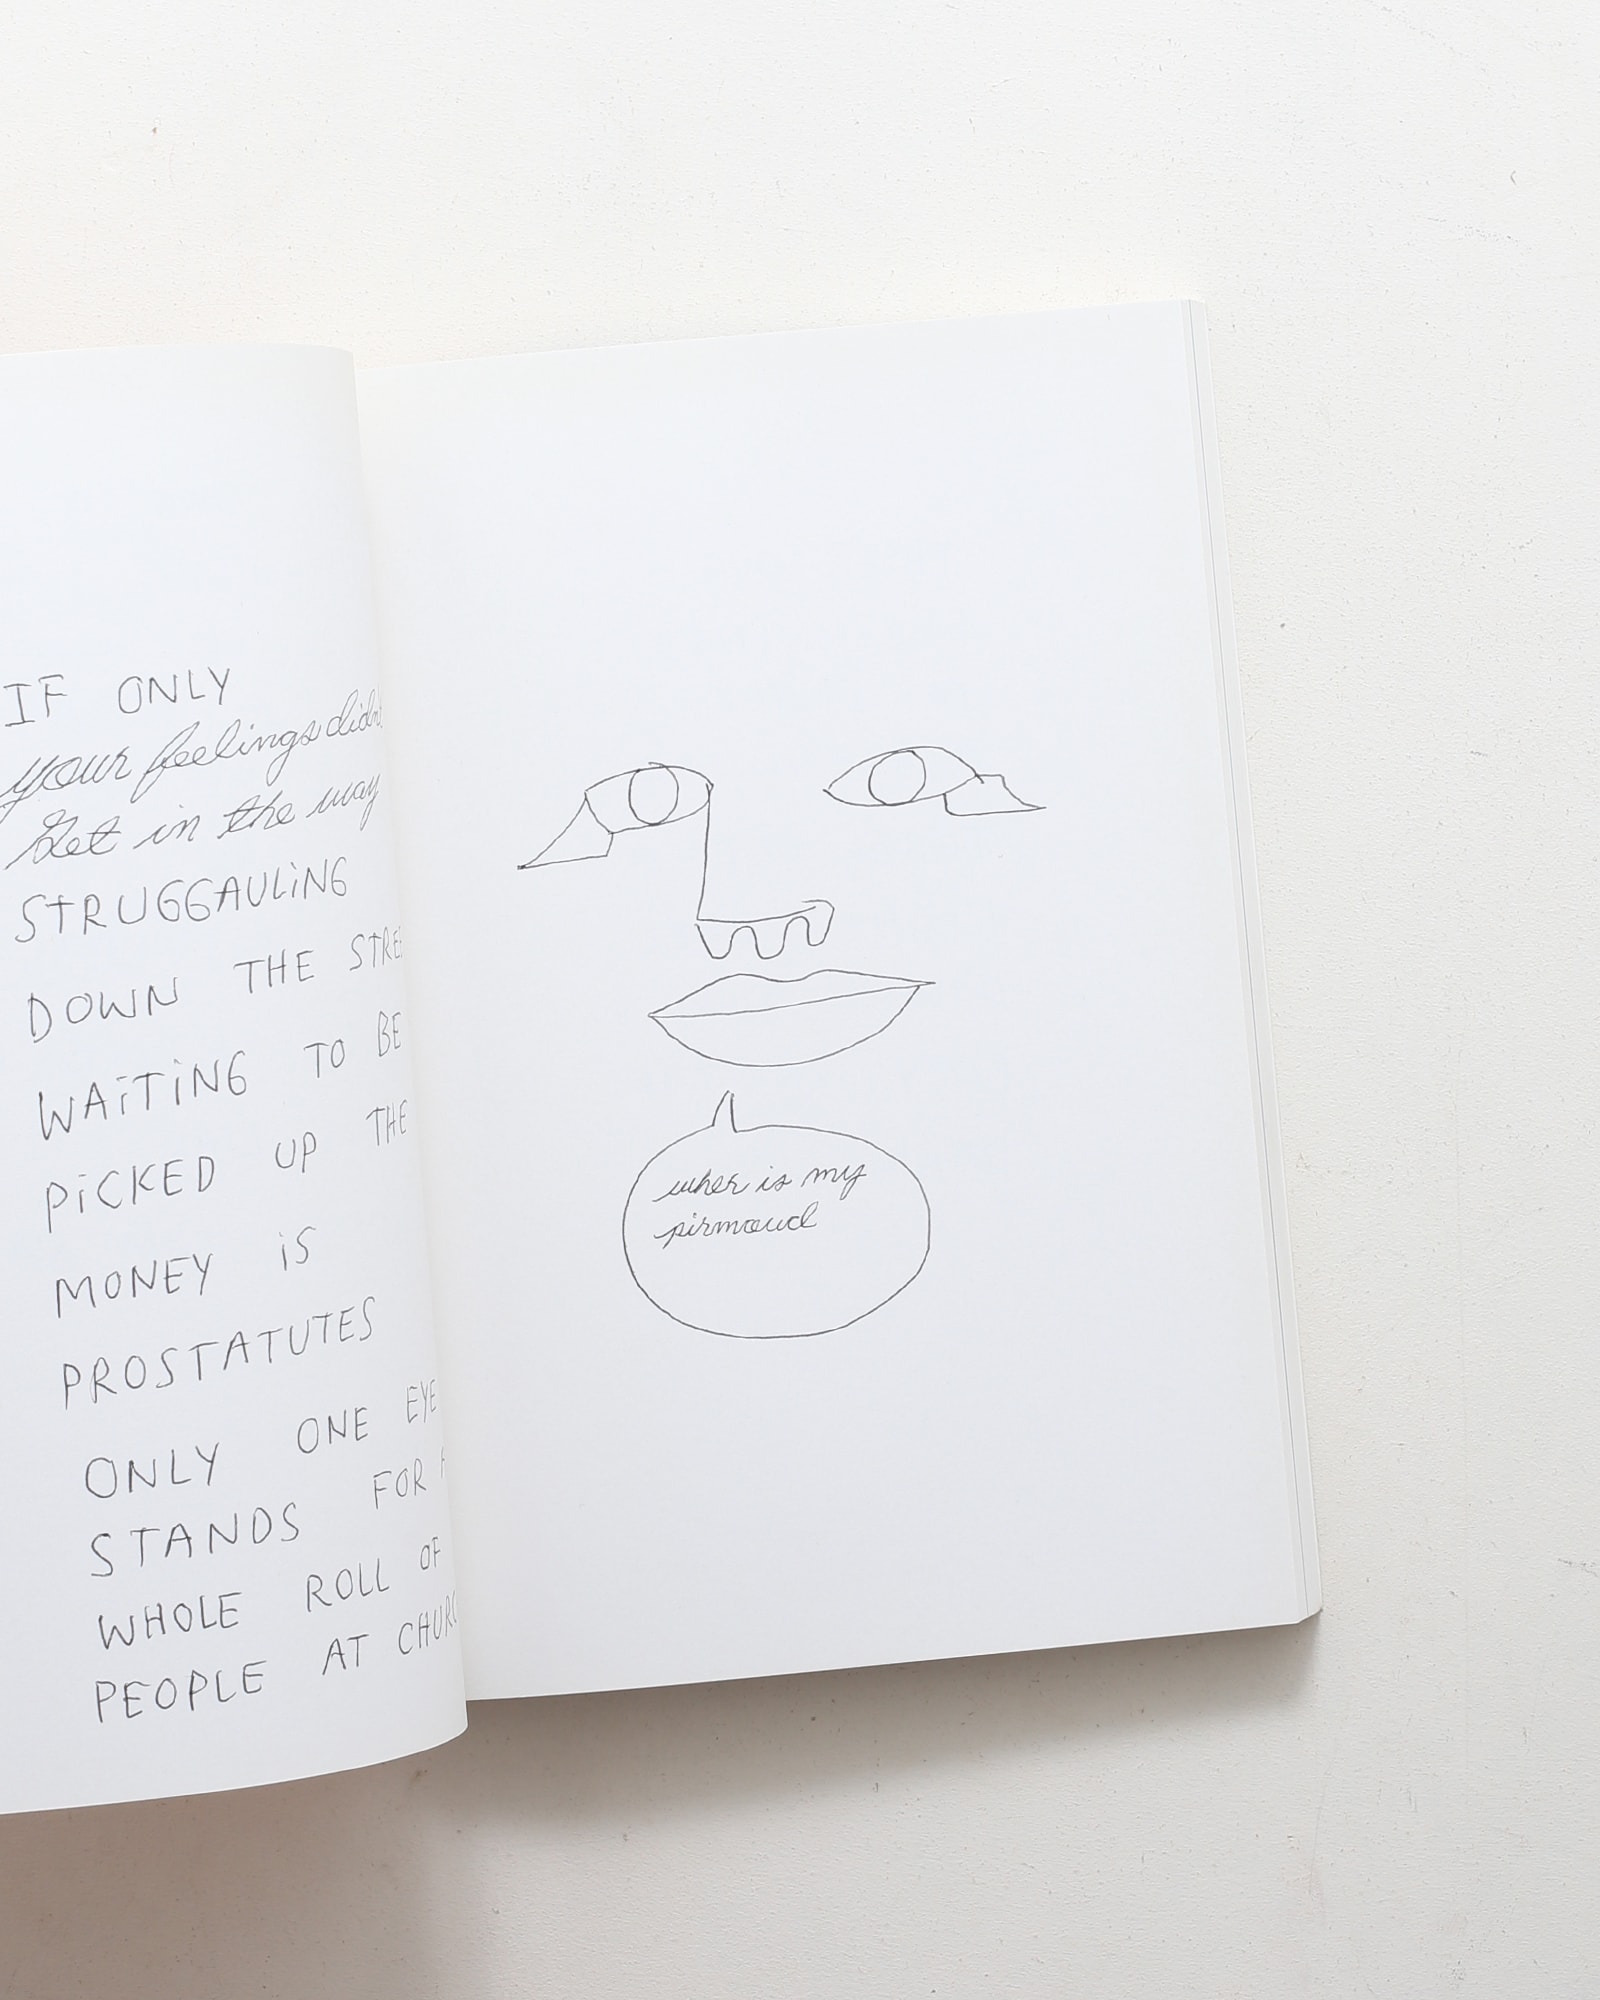 IF ONLY
your feelings didn't
Get in the way
STRUGGAULiNG
DOWN THE STREE
WAiTiNG TO BE
PiCKED UP THE
MONEY iS
PROSTATUTES
ONLY ONE EYE
STANDS FOR A
WHOLE ROLL OF
PEOPLE AT CHURC
wher is my
pirmaud